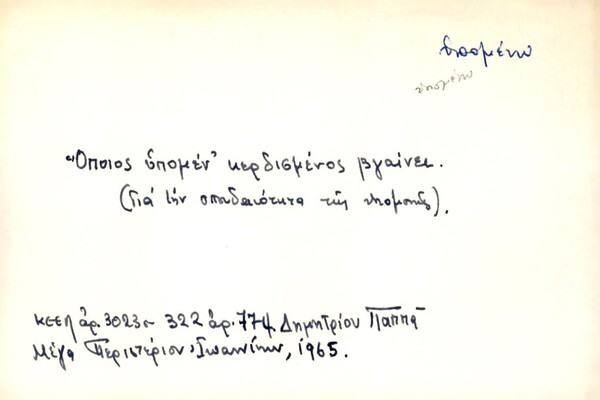 ὑπομένω
ὑπομένω
Ὅποιος ὑπομέν' κερδισμένος βγαίνει.
(Γιά τήν σπουδαιότητα τῆς ὑπομονῆς).
ΚΕΕΛ ἀρ. 3023 σ. 322 ἀρ. 774. Δημητρίου Παππᾶ
Μέγα Περιστέριον Ἰωαννίνων, 1965.